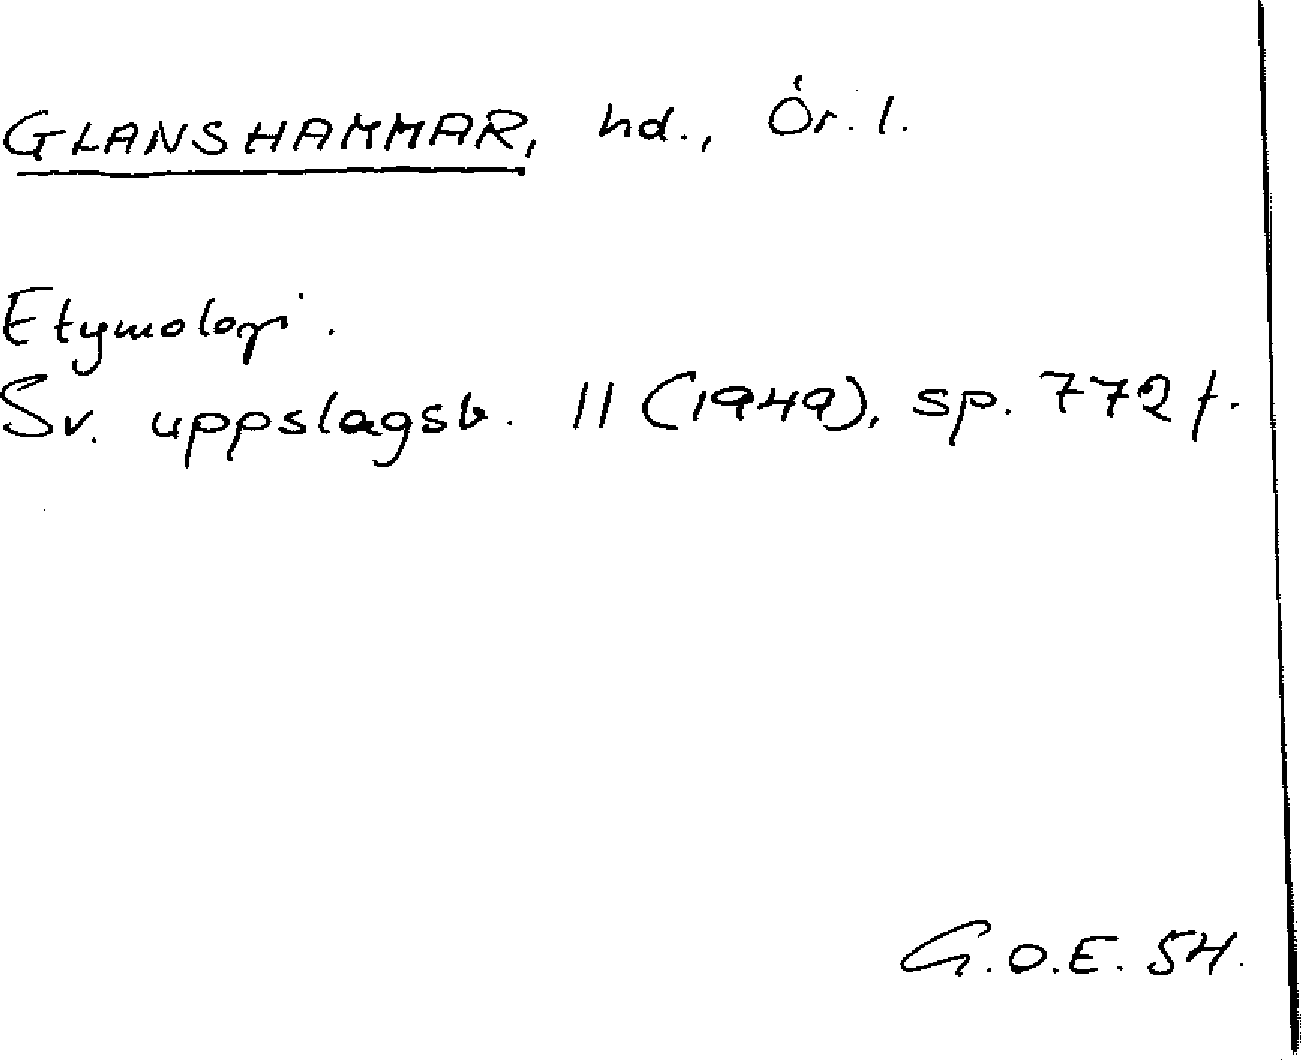 GLANSHAMMAR, hd., Ör. l.
Etymologi.
Sv. uppslagsb. 11 (1949), sp. 772 f.
G.O.E. 54.